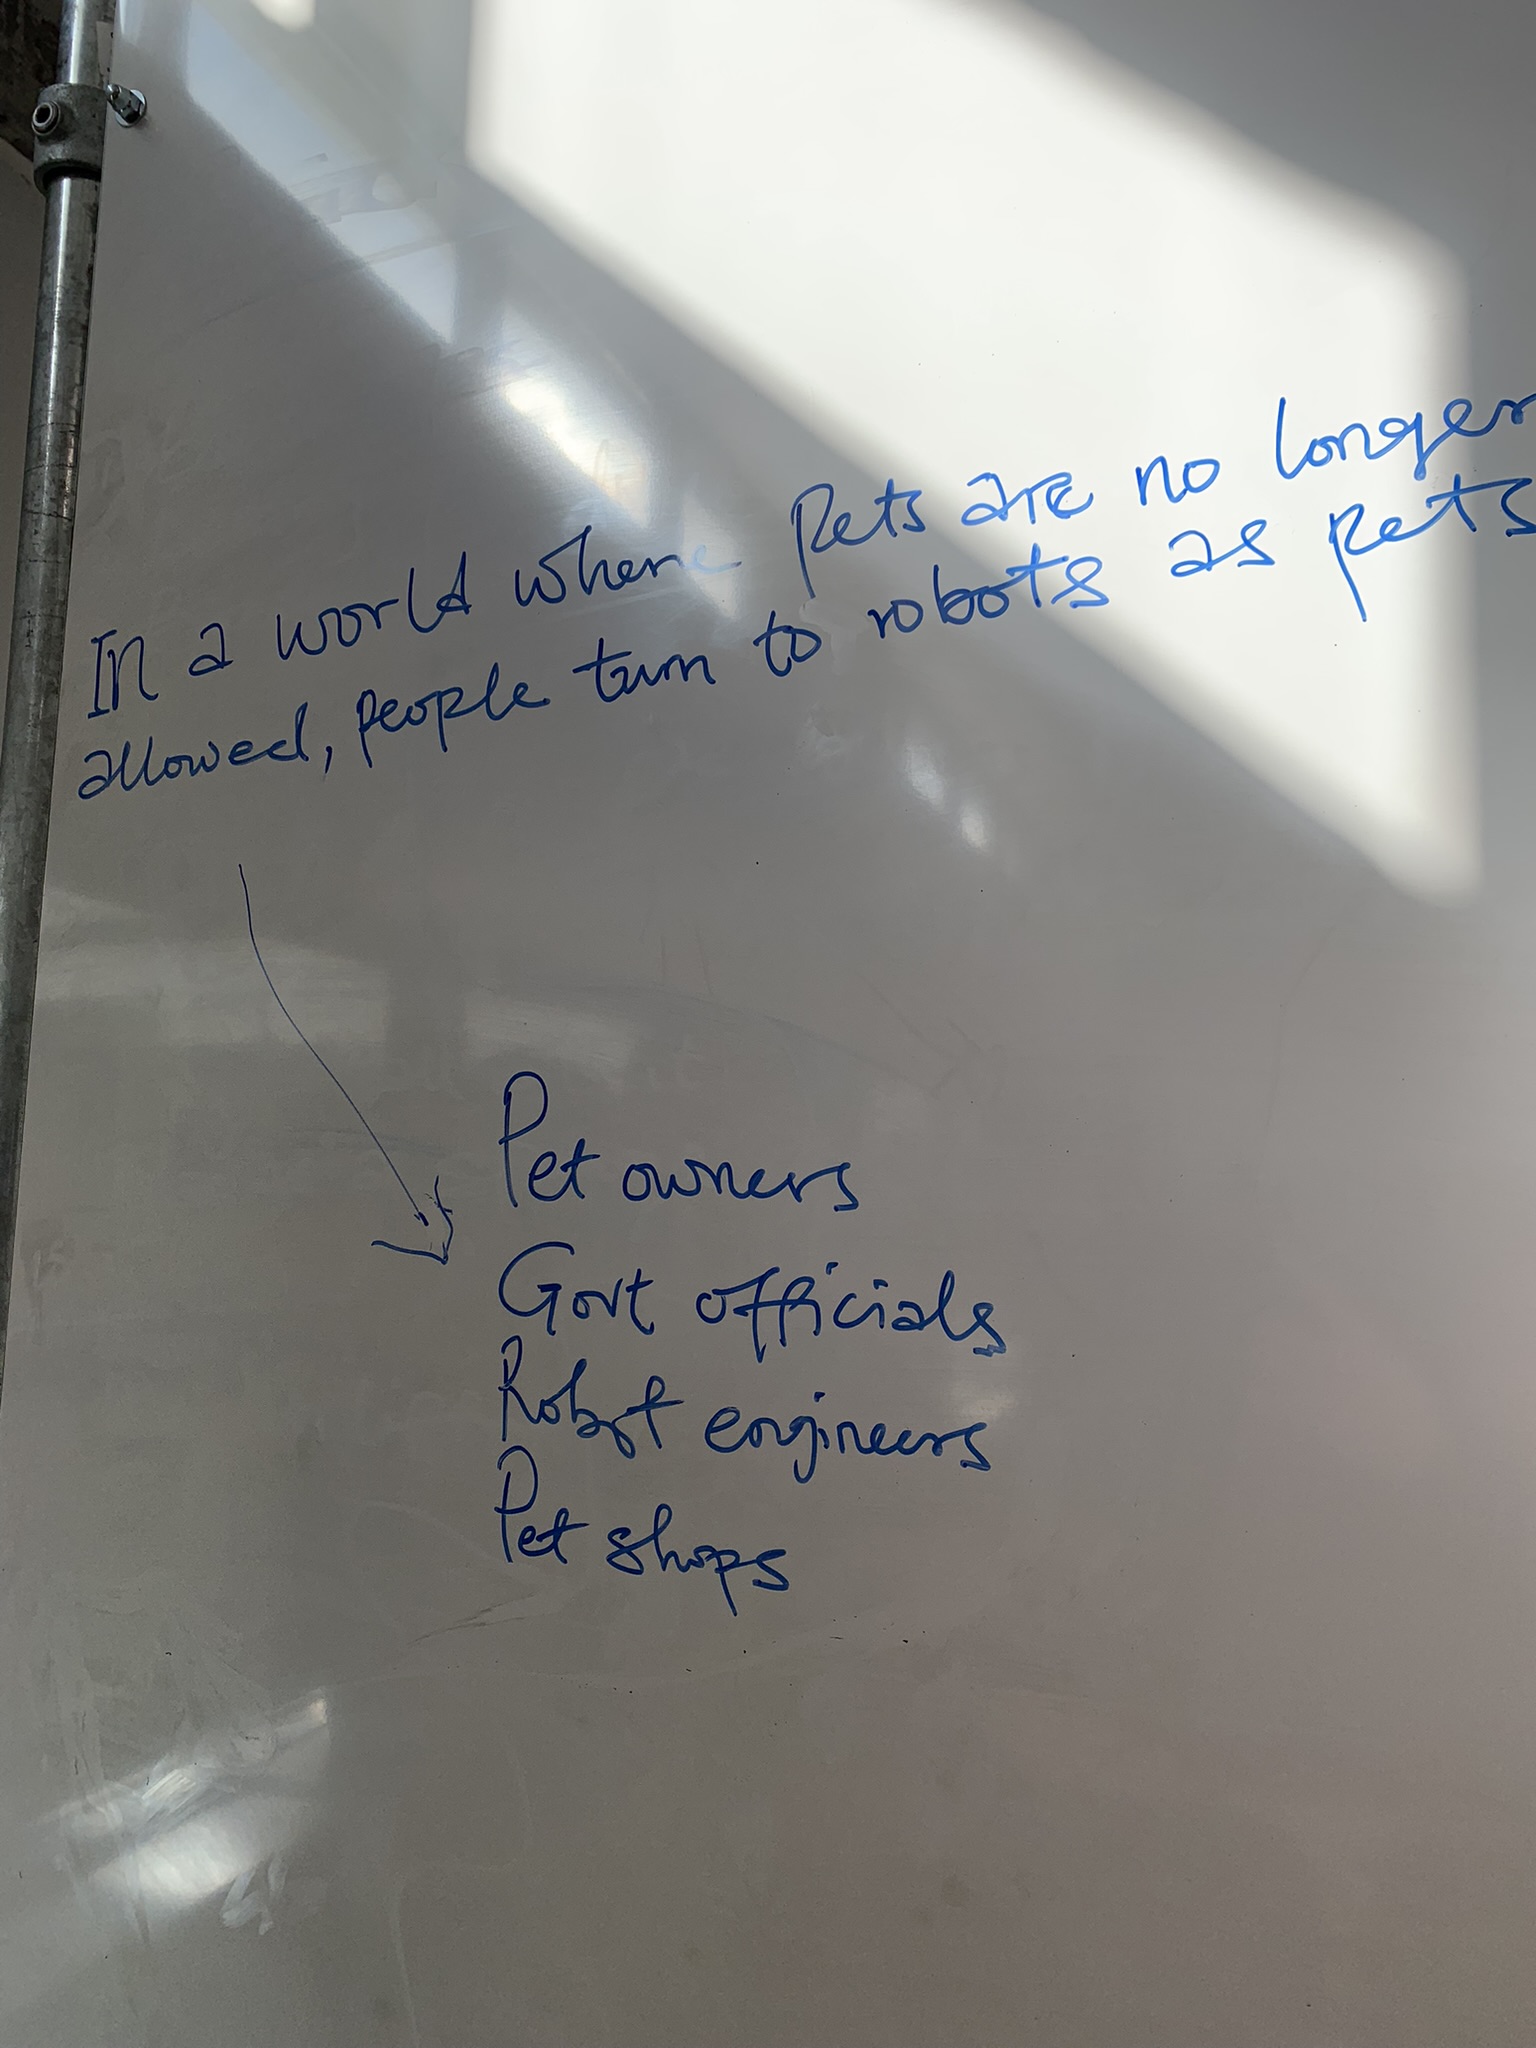 In a world where pets are no longer
allowed, people turn to robots as pets
Pet owners
Govt officials
Robot engineers
Pet shops